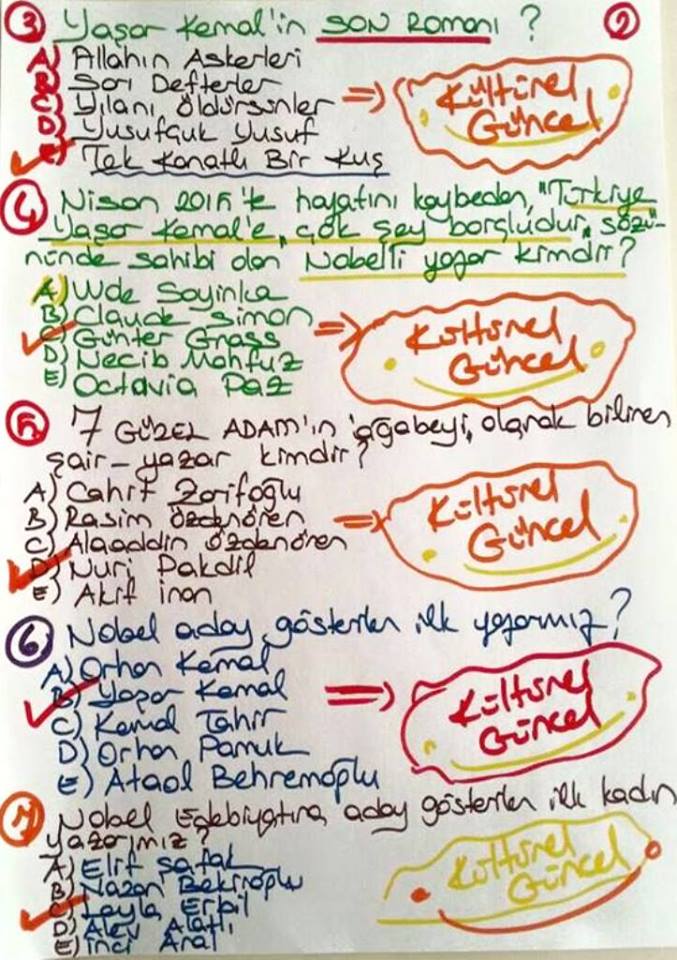 3 Yaşar Kemal'in SON Romanı ? 2
A) Allahın Askerleri
B) Sarı Defterler
C) Yılanı Öldürseniler
D) Yusufçuk Yusuf
E) Tek Kanatlı Bir Kuş
=> Kültürel
Güncel
4 Nisan 2015'te hayatını kaybeden, "Türkiye
Yaşar Kemal'e, çok şey borçludur, sözü-
nünde sahibi olan Nobelli yazar kimdir?
A) Wole Soyinka
B) Claude Simon
C) Günter Grass
D) Necib Mahfuz
E) Octavia Paz
=> Kültürel
Güncel
5 7 GÜZEL ADAM'ın 'ağabeyi, olarak bilinen
şair-yazar kimdir?
A) Cahit Zarifoğlu
B) Rasim Özdenören
C) Alaaddin Özdenören
D) Nuri Pakdil
E) Akif inan
=> Kültürel
Güncel
6 Nobel aday gösterilen ilk yazarımız?
A) Orhan Kemal
B) Yaşar Kemal
C) Kemal Tahir
D) Orhan Pamuk
E) Ataol Behramoğlu
=> Kültürel
Güncel
7 Nobel Edebiyatına aday gösterilen ilk kadın
yazarımız?
A) Elif Şafak
B) Nazan Bekiroğlu
C) Leyla Erbil
D) Alev Alatlı
E) İnci Aral
Kültürel
Güncel